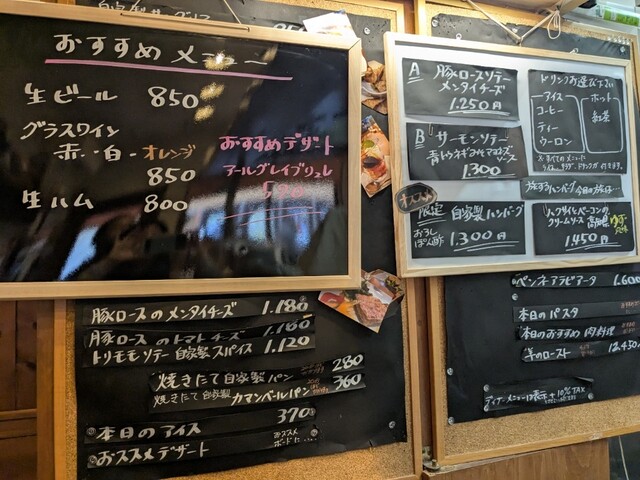 おすすめメニュー
生ビール 850
グラスワイン
赤・白・オレンジ
850
生ハム 800
おすすめデザート
アールグレイブリュレ
500
A 豚ロースソテー
メンタイチーズ
1.250円
B サーモンソテー
青トウガラシトマヨソース
1.300
オススメ
限定 自家製ハンバーグ
おろし
ぽん酢 1.300円
ドリンクお選び下さい
アイス ホット
コーヒー 紅茶
ティー
ウーロン
ハクサイとベーコンの
クリームソース
1.450円
豚ロースのメンタイチーズ 1.180
豚ロースのトマトチーズ 1.180
トリモモソテー自家製スパイス 1.120
焼きたて自家製パン 280
焼きたて自家製カマンベールパン 360
370
本日のアイス
おススメデザート
おススメ
ボードに
ペンネアラビアータ 1.600
本日のパスタ
本日のおすすめ肉料理
羊のロースト
ディナーメニューは表示+10%TAX